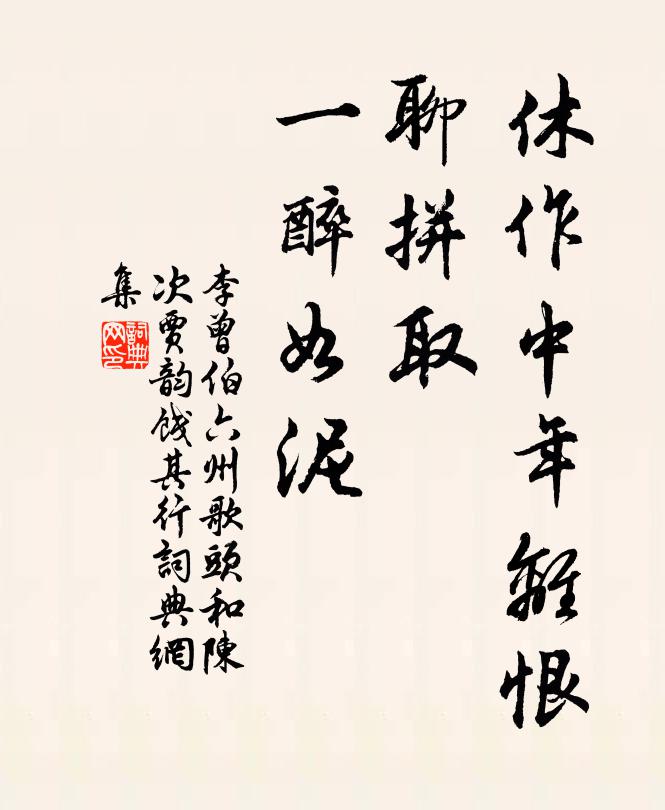 休作中年離恨
聊拼取
一醉如泥
李曾伯六州歌頭和陳
次賈韵餞其行詞典網
集
詞典
网印